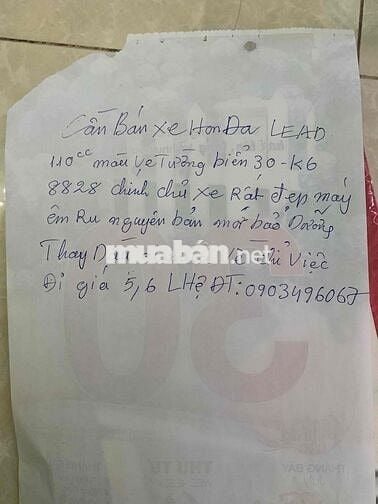 Cần Bán xe HonDa LEAD
110cc màu vàng Tường biển 30-K6
8828 chính chủ xe Rất đẹp máy
êm Ru nguyên bản mới bảo Dưỡng
Thay Dầu
muaban.net
chỉ Việc
Đi giá 5,6 LHệ ĐT: 0903496067
THỨ TƯ
THÁNG BẢY